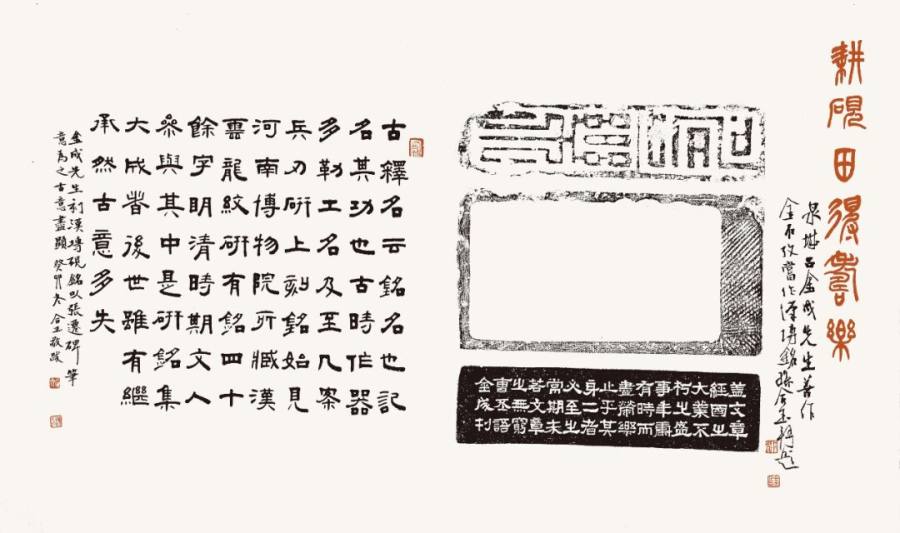 耕硯田得樂
泉城呂金成先生善作
盖文章
經國之
大業不
朽之盛
事年壽
有時而
盡榮樂
止乎其
身二者
必至之
常期未
若文章
之無窮
曹丕語
金成刊
古釋名云銘名也記
名其功也古時作器
多勒工名及至几案
兵刃研上刻銘始見
河南博物院所臧漢
雲龍紋研有銘四十
餘字明清時期文人
參與其中是研銘集
大成者後世雖有繼
承然古意多失
金成先生利漢塼硯銘以張遷碑筆
意為之古意盡顯癸卯冬合玉敬跋